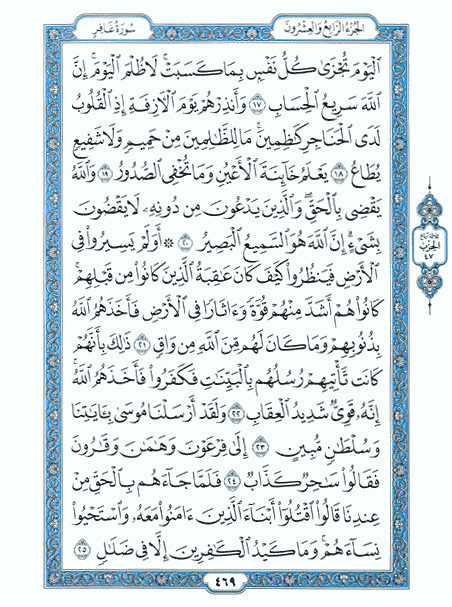 الجزء الرابع والعشرون
سورة غافر
ٱلۡيَوۡمَ تُجۡزَىٰ كُلُّ نَفۡسِۭ بِمَا كَسَبَتۡۚ لَا ظُلۡمَ ٱلۡيَوۡمَۚ إِنَّ
ٱللَّهَ سَرِيعُ ٱلۡحِسَابِ ١٧ وَأَنذِرۡهُمۡ يَوۡمَ ٱلۡأٓزِفَةِ إِذِ ٱلۡقُلُوبُ
لَدَى ٱلۡحَنَاجِرِ كَٰظِمِينَۚ مَا لِلظَّٰلِمِينَ مِنۡ حَمِيمٖ وَلَا شَفِيعٖ
يُطَاعُ ١٨ يَعۡلَمُ خَآئِنَةَ ٱلۡأَعۡيُنِ وَمَا تُخۡفِي ٱلصُّدُورُ ١٩ وَٱللَّهُ
يَقۡضِي بِٱلۡحَقِّۖ وَٱلَّذِينَ يَدۡعُونَ مِن دُونِهِۦ لَا يَقۡضُونَ
بِشَيۡءٍۗ إِنَّ ٱللَّهَ هُوَ ٱلسَّمِيعُ ٱلۡبَصِيرُ ٢٠ ۞ أَوَلَمۡ يَسِيرُواْ فِي
ٱلۡأَرۡضِ فَيَنظُرُواْ كَيۡفَ كَانَ عَٰقِبَةُ ٱلَّذِينَ كَانُواْ مِن قَبۡلِهِمۡۚ
كَانُواْ هُمۡ أَشَدَّ مِنۡهُمۡ قُوَّةٗ وَءَاثَارٗا فِي ٱلۡأَرۡضِ فَأَخَذَهُمُ ٱللَّهُ
بِذُنُوبِهِمۡ وَمَا كَانَ لَهُم مِّنَ ٱللَّهِ مِن وَاقٖ ٢١ ذَٰلِكَ بِأَنَّهُمۡ
كَانَت تَّأۡتِيهِمۡ رُسُلُهُم بِٱلۡبَيِّنَٰتِ فَكَفَرُواْ فَأَخَذَهُمُ ٱللَّهُۚ
إِنَّهُۥ قَوِيّٞ شَدِيدُ ٱلۡعِقَابِ ٢٢ وَلَقَدۡ أَرۡسَلۡنَا مُوسَىٰ بِـَٔايَٰتِنَا
وَسُلۡطَٰنٖ مُّبِينٍ ٢٣ إِلَىٰ فِرۡعَوۡنَ وَهَٰمَٰنَ وَقَٰرُونَ
فَقَالُواْ سَٰحِرٞ كَذَّابٞ ٢٤ فَلَمَّا جَآءَهُم بِٱلۡحَقِّ مِنۡ
عِندِنَا قَالُواْ ٱقۡتُلُوٓاْ أَبۡنَآءَ ٱلَّذِينَ ءَامَنُواْ مَعَهُۥ وَٱسۡتَحۡيُواْ
نِسَآءَهُمۡۚ وَمَا كَيۡدُ ٱلۡكَٰفِرِينَ إِلَّا فِي ضَلَٰلٖ ٢٥
٤٦٩
الحزب
٤٧